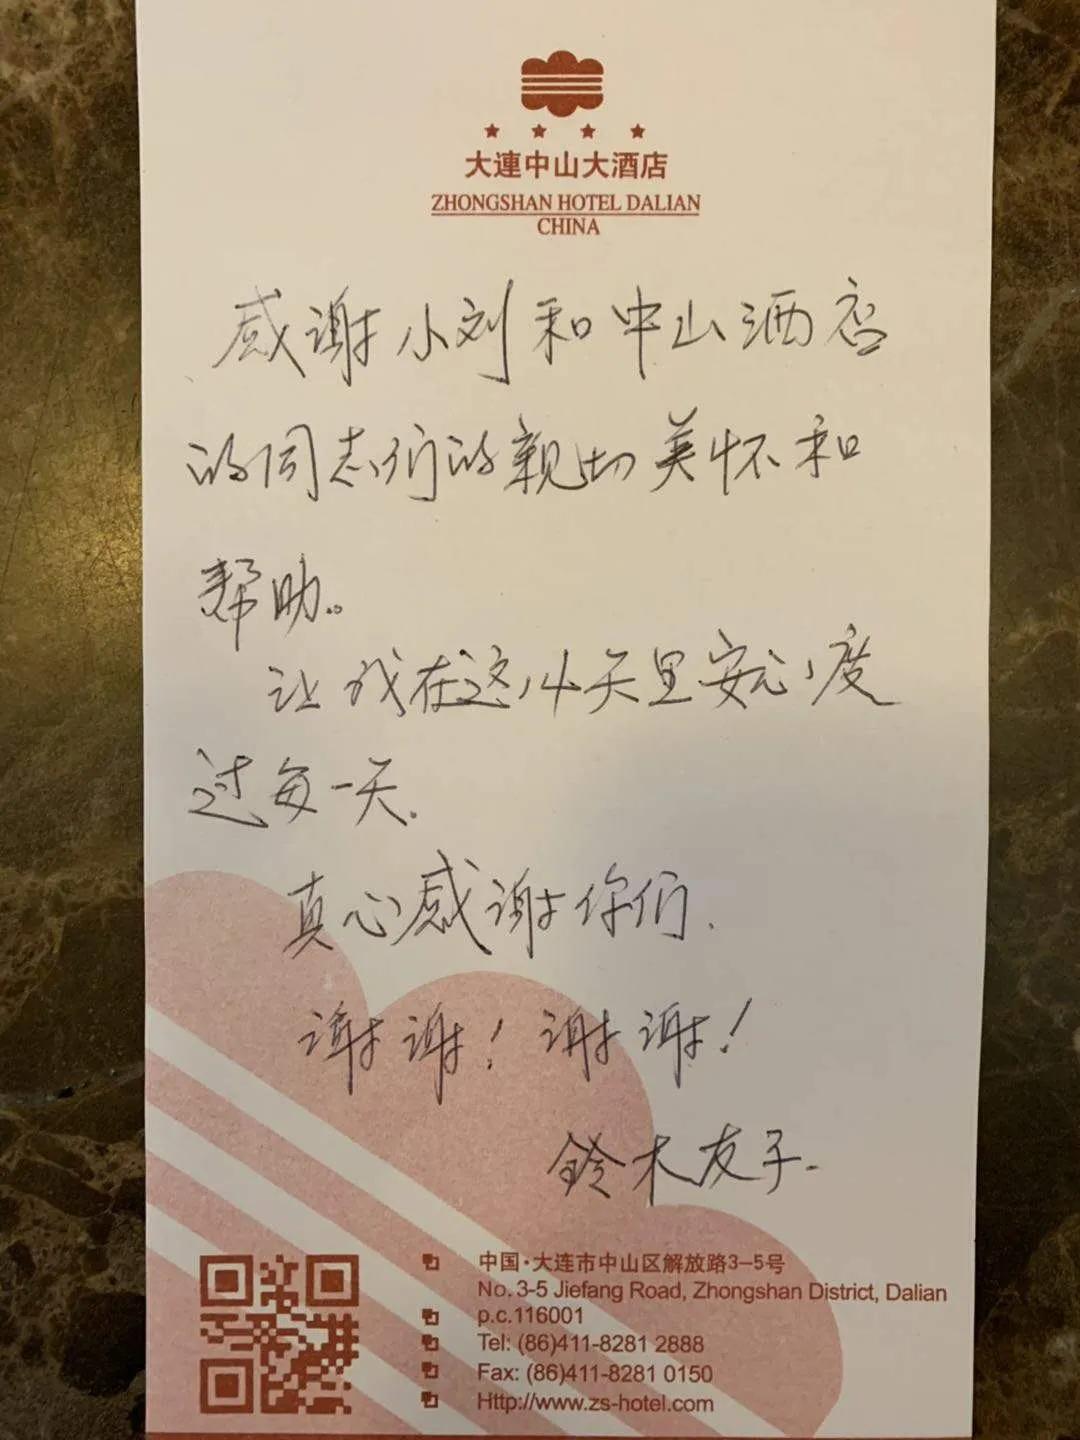 大連中山大酒店
ZHONGSHAN HOTEL DALIAN
CHINA
感谢小刘和中山酒店
的同志们的亲切关怀和
帮助。
让我在这14天里安心度
过每一天.
真心感谢你们.
谢谢！谢谢！
鈴木友子.
中国·大连市中山区解放路3-5号
No. 3-5 Jiefang Road, Zhongshan District, Dalian
p.c.116001
Tel: (86)411-8281 2888
Fax: (86)411-8281 0150
Http://www.zs-hotel.com